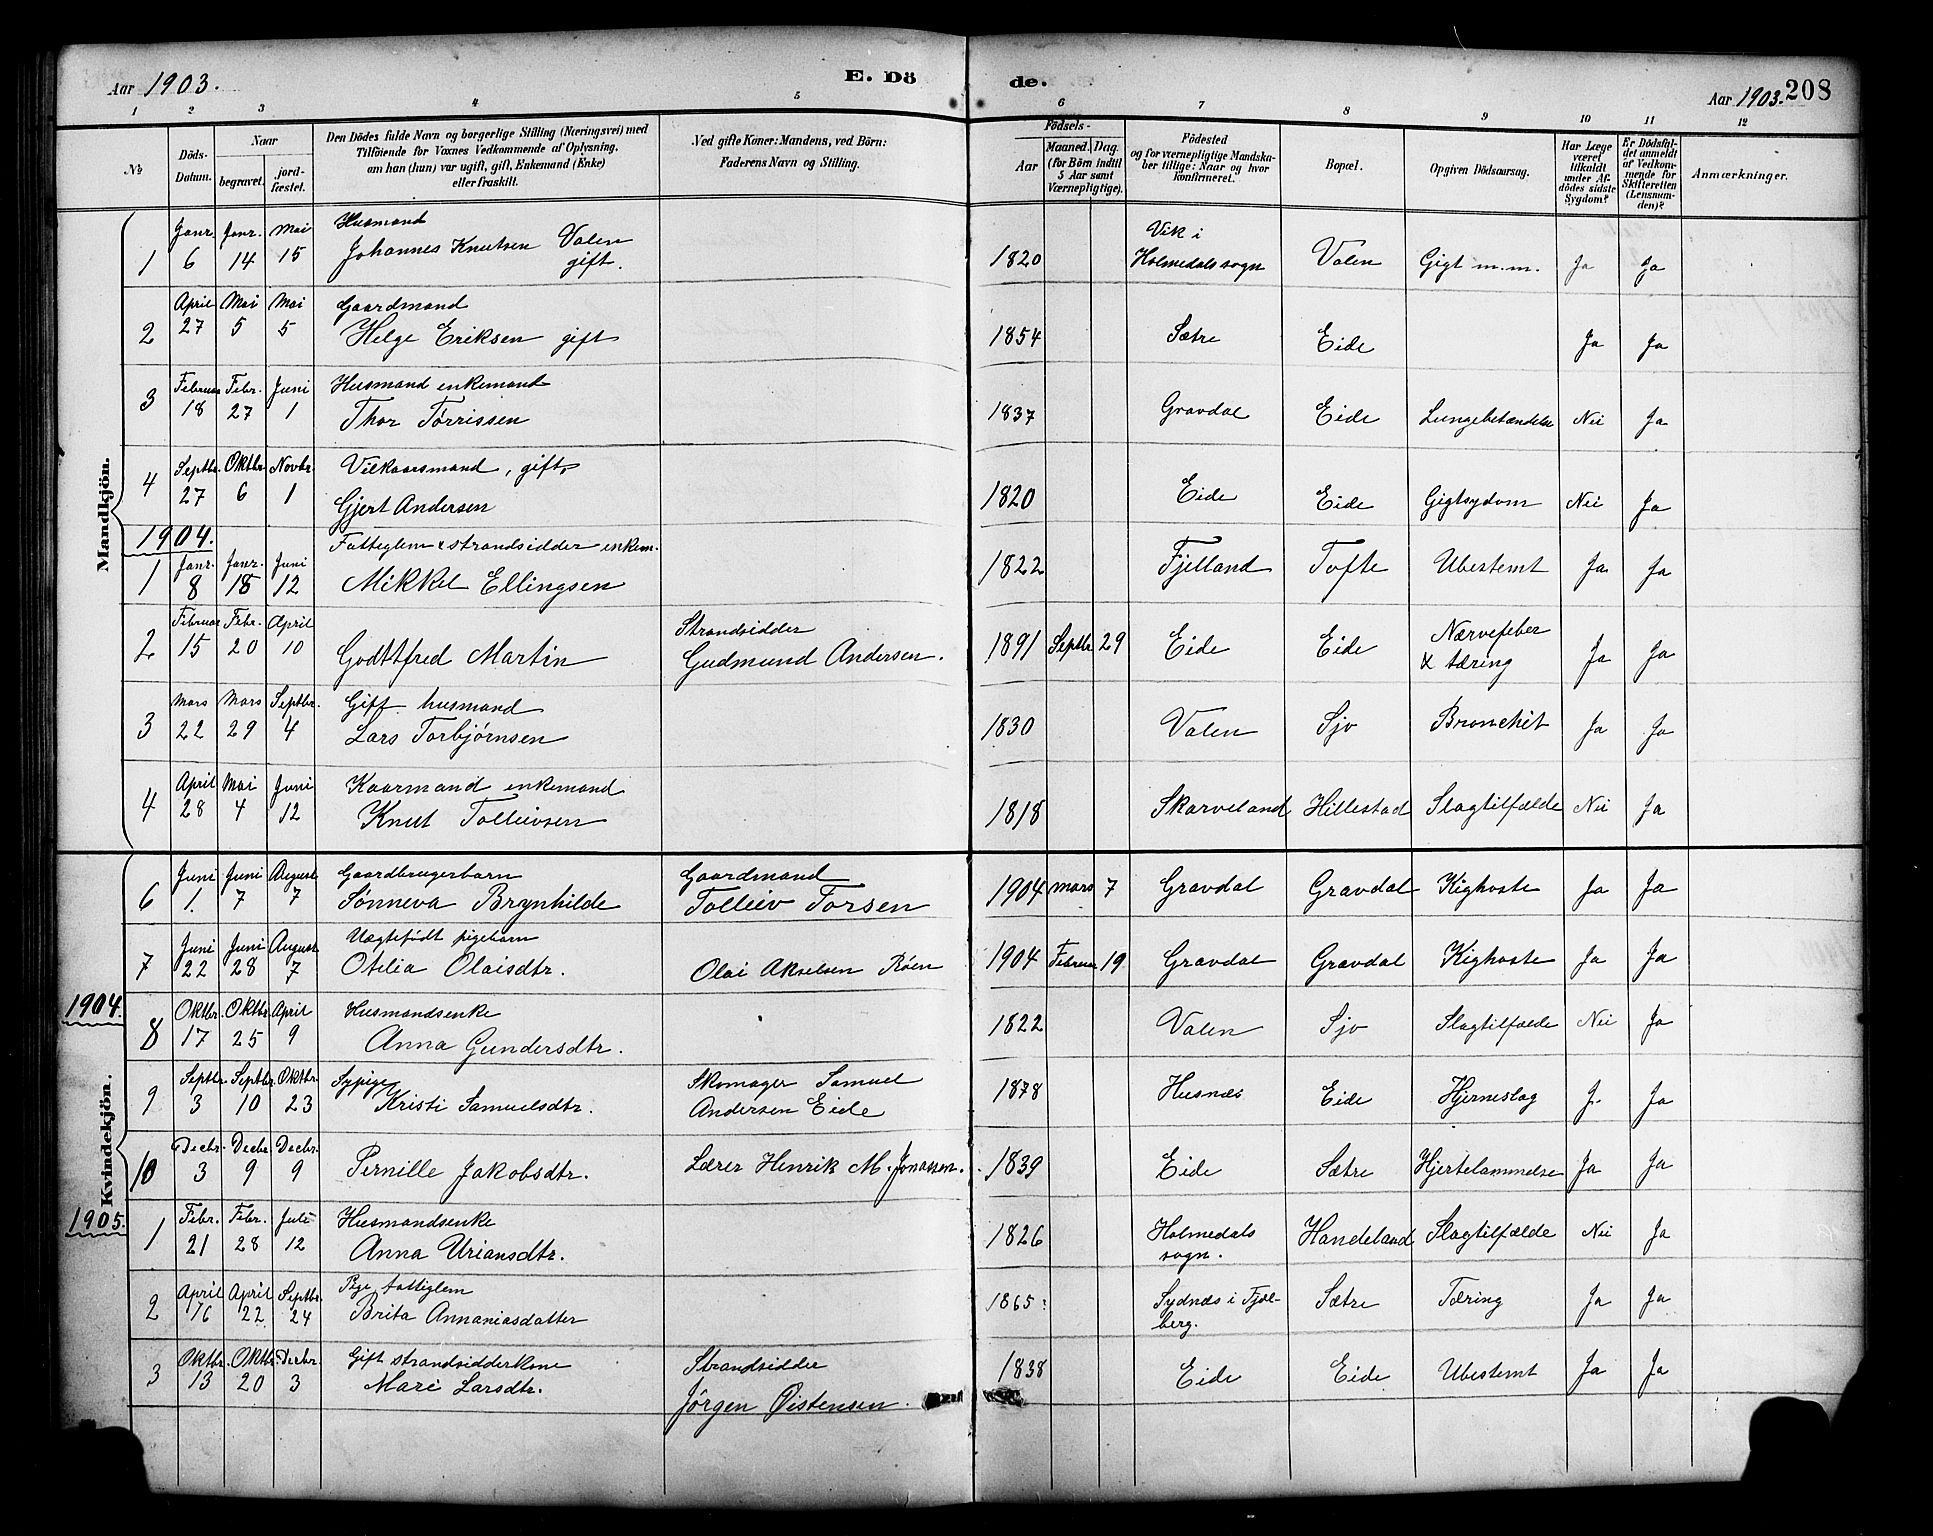 Aar 1903. E. Dö de. Aar 1903. 208
1 2 3 4 5 6 7 8 9 10 11 12
№ Döds-Datum. Naar begravet. jord-fæstet. Den Dödes fulde Navn og borgerlige Stilling (Næringsvei) med Tilföiende for Voxnes Vedkommende af Oplysning, om han (hun) var ugift, gift, Enkemand (Enke) eller fraskilt. Ved gifte Koner: Mandens, ved Börn: Faderens Navn og Stilling. Födsels- Aar Maaned. Dag. (for Börn indtil 5 Aar samt Værnepligtige). Födested og for værnepligtige Mandska-ber tillige: Naar og hvor konfirmeret. Bopæl. Opgiven Dödsaarsag. Har Læge været tilkaldt under Af-dödes sidste Sygdom? Er Dödsfal-det anmeldt af Vedkom-mende for Skifteretten (Lensman-den)? Anmærkninger.
Mandkjön.
1 Janr. 6 Janr. 14 Mai 15 Husmand Johannes Knutsen Valen gift. 1820 Vik i Holmedals sogn Valen Gigt m.m. Ja Ja
2 April 27 Mai 5 Mai 5 Gaardmand Helge Eriksen gift 1854 Sætre Eide Ja Ja
3 Februar 18 Febr. 27 Juni 1 Husmand enkemand Thor Tørrissen 1837 Gravdal Eide Lungebetændelse Nei Ja
4 Septbr. 27 Oktbr. 6 Novbr. 1 Vilkaarsmand, gift, Gjert Andersen 1820 Eide Eide Gigtsydom Nei Ja
1904.
1 Janr. 8 Janr. 18 Juni 12 Fattiglem & strandsidder enkem. Mikkel Ellingsen 1822 Fjelland Tofte Ubestemt Ja Ja
2 Februar 15 Febr. 20 April 10 Godttfred Martin Strandsidder Gudmund Andersen. 1891 Septbr 29 Eide Eide Nærvefeber & tæring Ja Ja
3 Mars 22 Mars 29 Septbr. 4 Gift husmand Lars Torbjørnsen 1830 Valen Sjo Bronchit Ja Ja
4 April 28 Mai 4 Juni 12 Kaarmand enkemand Knut Tolleivsen 1818 Skarveland Hillestad Slagtilfælde Nei Ja
Kvindekjön.
6 Juni 1. Juni 7 August 7 Gaardbrugerbarn Sønneva Brynhilde Gaardmand Tolleiv Torsen 1904 Mars 7 Gravdal Gravdal Kighoste Ja Ja
7 Juni 22 Juni 28 August 7 Uægtefødt pigebarn Otilia Olaisdtr. Olai Akselsen Røen 1904 Februar 19 Gravdal Gravdal Kighoste Ja Ja
1904.
8 Oktbr. 17 Oktbr. 25 April 9 Husmandsenke Anna Gundersdtr. 1822 Valen Sjo Slagtilfælde Nei Ja
9 Septbr. 3 Septbr. 10 Oktbr. 23 Sypige Kristi Samuelsdtr. Skomager Samuel Andersen Eide 1878 Husnæs Eide Hjerneslag J. Ja
10 Decbr. 3 Decbr. 9 Decbr. 9 Pernille Jakobsdtr. Lærer Henrik M. Jonassen. 1839 Eide Sætre Hjertelammelse Ja Ja
1905.
1 Febr. 21 Febr. 28 Juli 12 Husmandsenke Anna Uriansdtr. 1826 Holmedals sogn. Handeland Slagtilfælde Nei Ja
2 April 16 April 22 Septbr. 24 Pige fattiglem Brita Annaniasdatter 1865 Sydnæs i Fjel-berg. Sætre Tæring Ja Ja
3 Oktbr. 13 Oktbr. 20 Decbr. 3 Gift strandsidderkone Mari Larsdtr. Strandsidder Jørgen Øistensen. 1838 Eide Eide Ubestemt Ja Ja